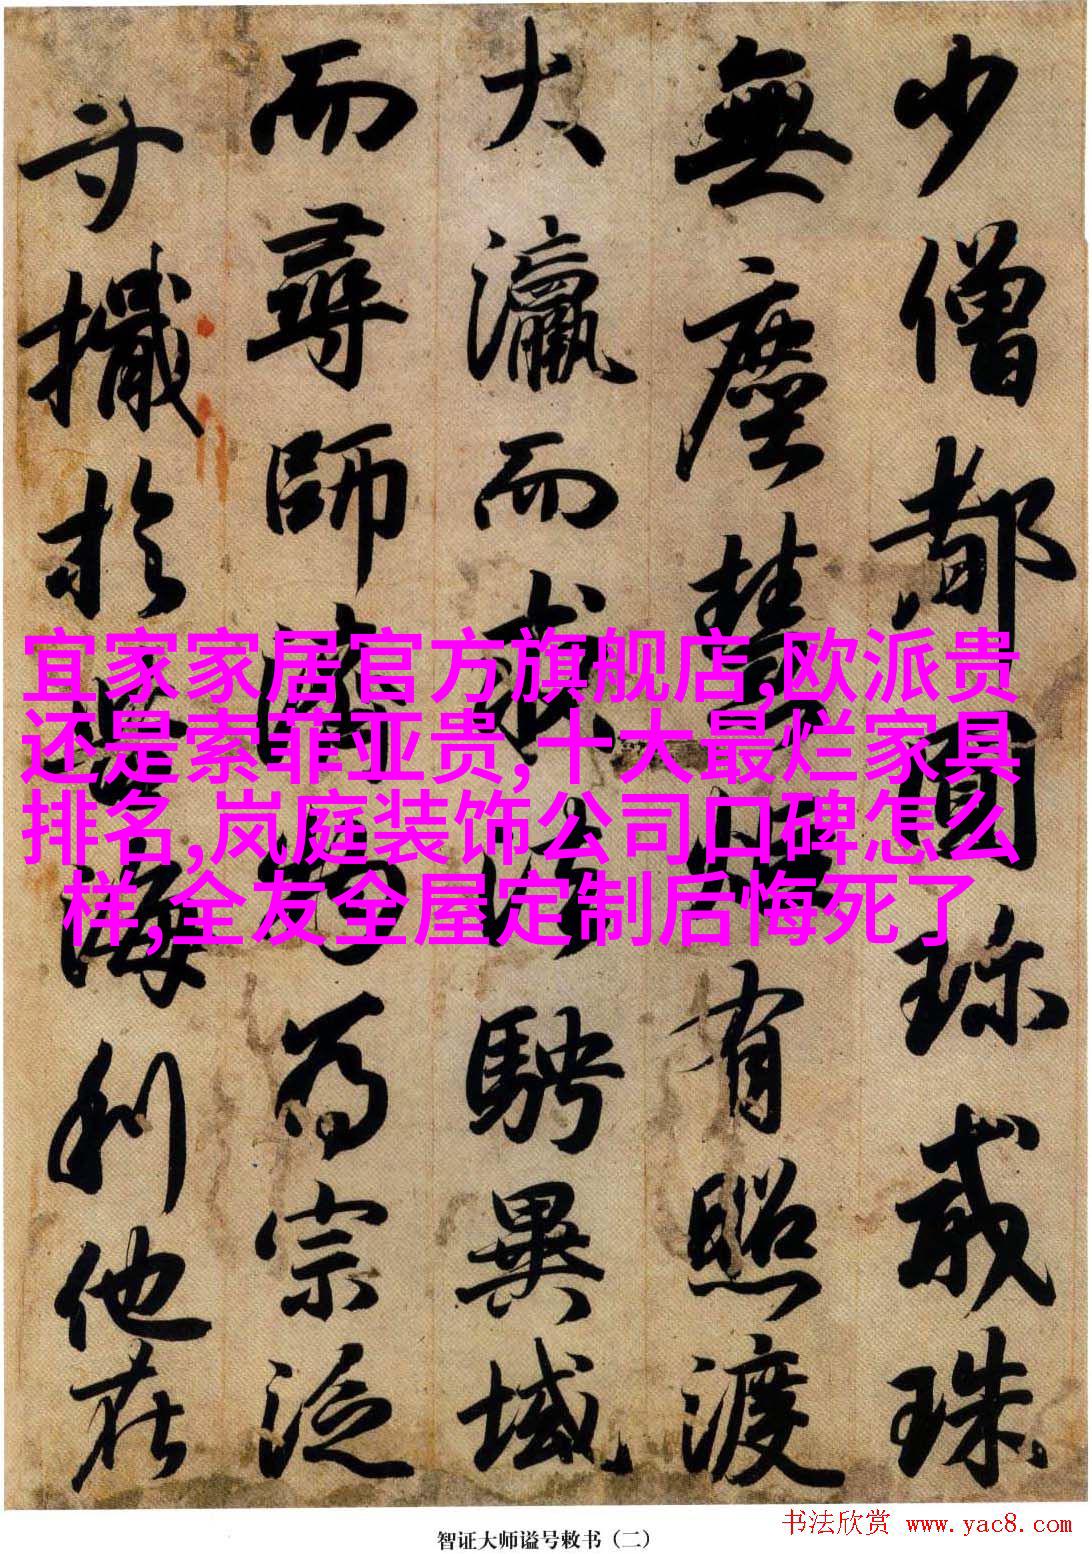 少僧都圓珎戒珠
無塵慧炬有照渡
大瀛而求法騁異域
而尋師濟物為宗泛
寸檝於苦海利他在
宜家家居官方旗舰店,欧派贵
还是索菲亚贵,十大最烂家具
排名,岚庭装饰公司口碑怎么
样,全友全屋定制后悔死了
智证大师谥号敕书（二）
书法欣赏 www.yac8.com